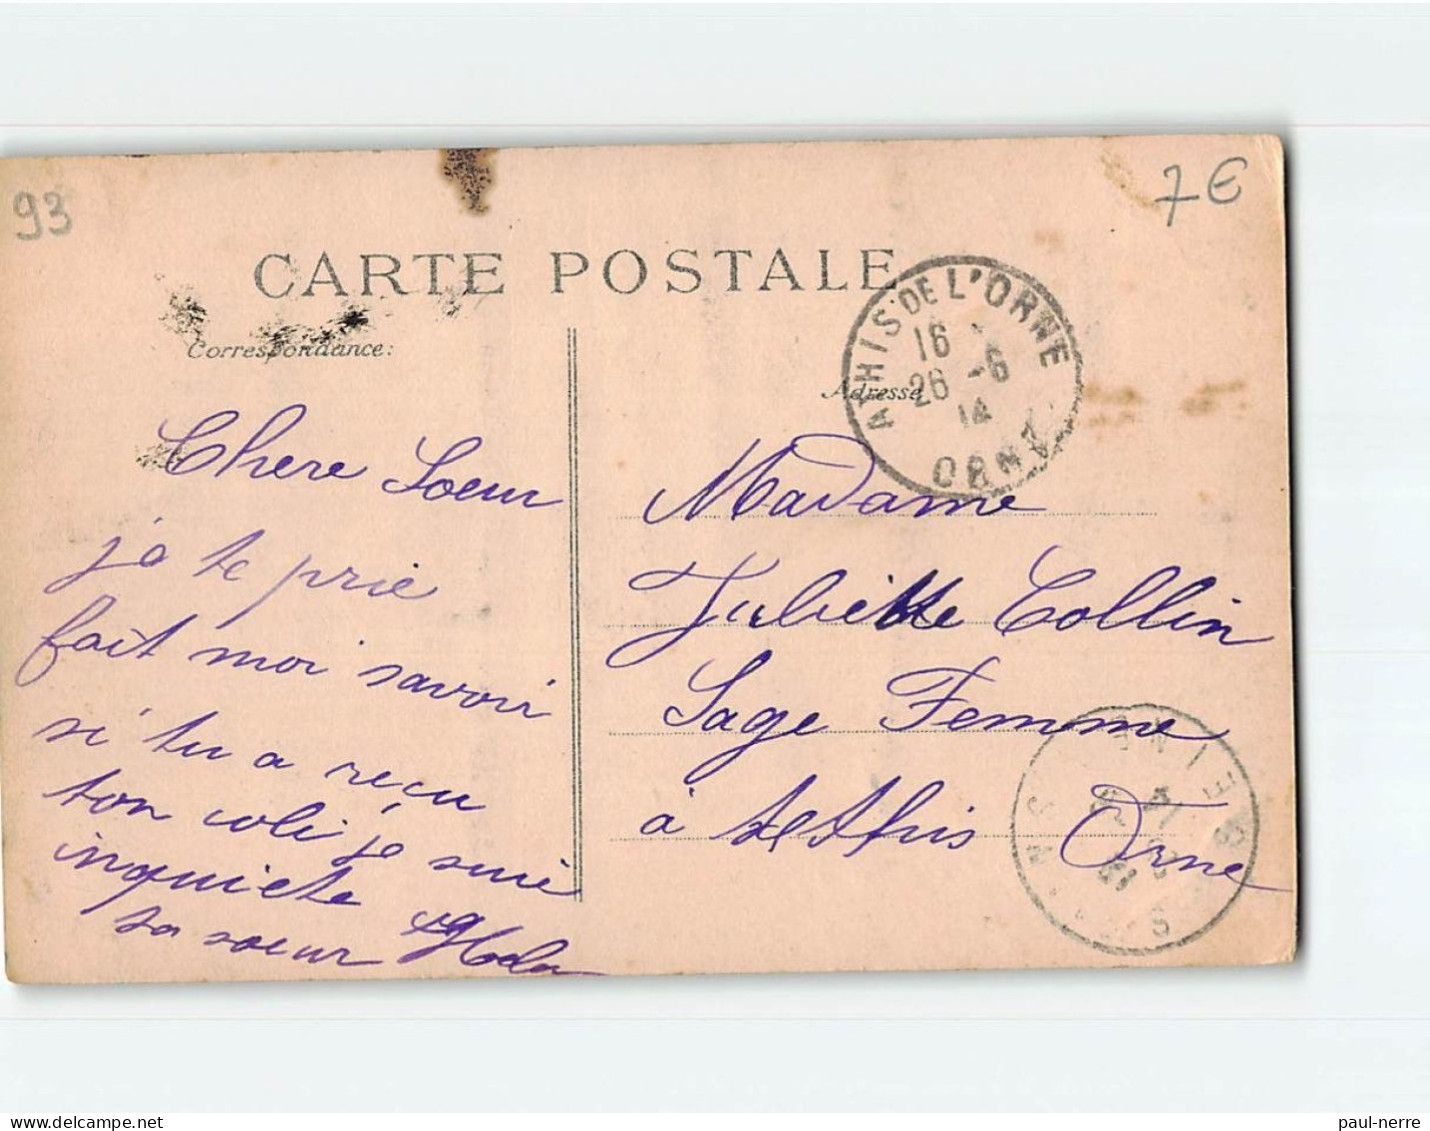 93
7€
CARTE POSTALE
Correspondance:
Adresse
ATHIS DE L'ORNE
16
26 -6
14
ORNE
Chere Soeur
je te prie
fait moi savoir
si tu a reçu
ton coli je suis
inquiete
ta soeur
Madame
Juliette Collin
Sage Femme
à Athis Orne
SEINE
paul-nerre